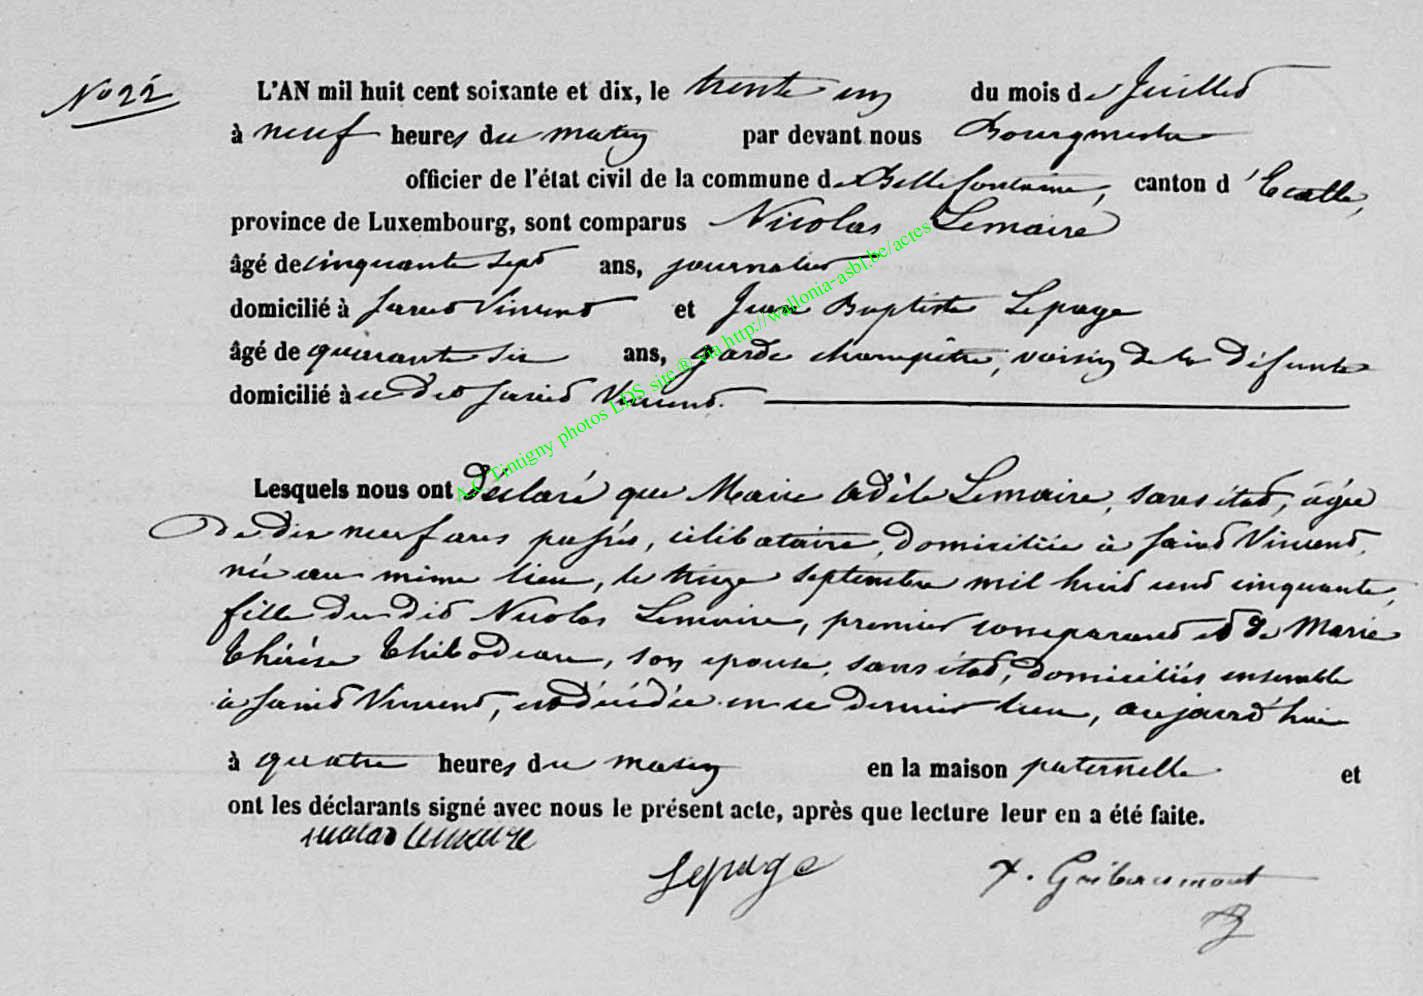 No 22
L'AN mil huit cent soixante et dix, le trente un du mois de Juillet
à neuf heures du matin par devant nous Bourgmestre
officier de l'état civil de la commune de Bellefontaine, canton d'Etalle,
province de Luxembourg, sont comparus Nicolas Lemaire
âgé de cinquante sept ans, journalier
domicilié à Saint Vincent et Jean Baptiste Lepage
âgé de quarante six ans, garde champêtre, voisin de la défunte
domicilié à ce dit Saint Vincent.
Lesquels nous ont déclaré que Marie Adèle Lemaire, sans état, âgée
de dix neuf ans passés, célibataire, domiciliée à Saint Vincent,
née au même lieu, le treize septembre mil huit cent cinquante,
fille du dit Nicolas Lemaire, premier comparant et de Marie
Thérèse Thibodeau, son épouse, sans état, domiciliés ensemble
à Saint Vincent, est décédée en ce dernier lieu, aujourd'hui
à quatre heures du matin en la maison paternelle et
ont les déclarants signé avec nous le présent acte, après que lecture leur en a été faite.
nicolas lemaire
Lepage
Guibaumont
A.C Tintigny photos LDS site @ via http://wallonia-asbl.be/actes